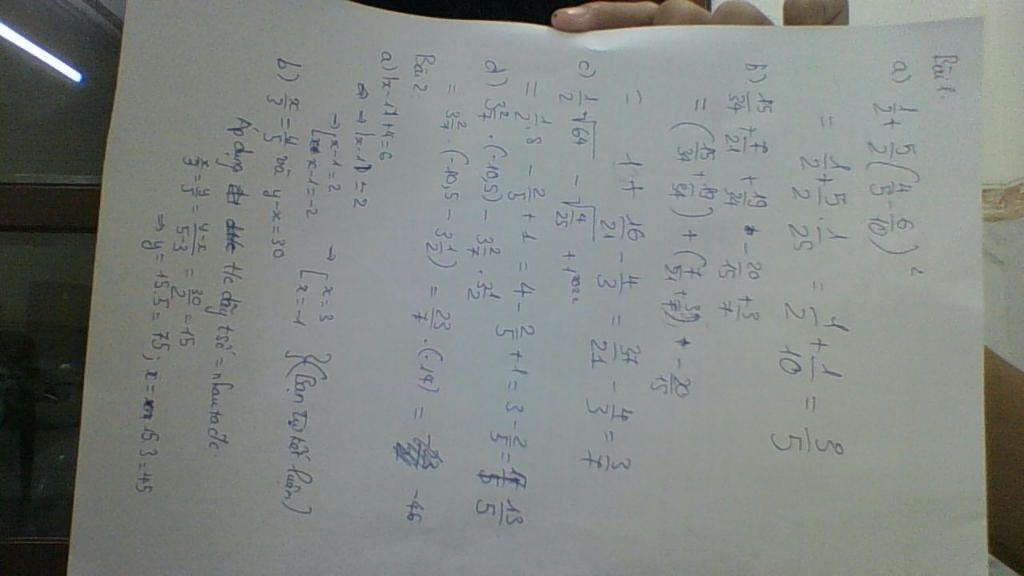 Bài 1.
a) 1/2 + 5/2 (4/5 - 6/10)²
= 1/2 + 5/2 . 1/25 = 1/2 + 1/10 = 3/5
b) 15/34 + 7/21 + 19/34 - 20/15 + 3/7
= (15/34 + 19/34) + (7/21 + 3/7) - 20/15
= 1 + 16/21 - 4/3 = 37/21 - 4/3 = 3/7
c) 1/2 √64 - √4/25 + 1²⁰²²
= 1/2 . 8 - 2/5 + 1 = 4 - 2/5 + 1 = 3 - 2/5 = 13/5
d) 3 2/7 . (-10,5) - 3 2/7 . 3 1/2
= 3 2/7 . (-10,5 - 3 1/2) = 23/7 . (-14) = -46
Bài 2.
a) |x-1|+4=6
⇒ |x-1| = 2
→ [x-1=2 → [x=3
[x-1=-2 [x=-1 (Bạn tự kết luận)
b) x/3 = y/5 và y-x=30
Áp dụng t/c dãy tỉ số = nhau ta đc
x/3 = y/5 = y-x/5-3 = 30/2 = 15
⇒ y = 15.5 = 75; x = 15.3=45